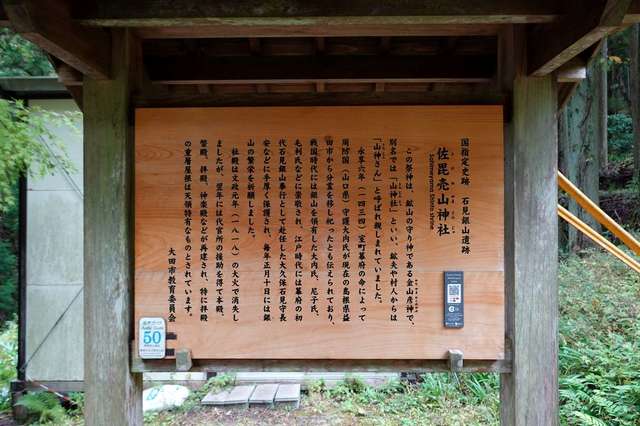 国指定史跡　石見銀山遺跡
佐毘売山神社
さひめやまじんじゃ
sahimeyama Shinto shrine
この祭神は、鉱山の守り神である金山彦神で、
別名では「山神社」といい、鉱夫や村人からは
「山神さん」と呼ばれ親しまれていました。
永享六年（一四三四）室町幕府の命によって
周防国（山口県）守護大内氏が現在の島根県益
田市から分霊を移し祀ったとも伝えられており、
戦国時代には銀山を領有した大内氏、尼子氏、
毛利氏などに崇敬され、江戸時代には幕府の初
代石見銀山奉行として赴任した大久保石見守長
安などに手厚く保護され、毎年正月十日には銀
山の繁栄を祈願しました。
社殿は文政元年（一八一八）の大火で消失し
ましたが、翌年には代官所の援助を得て本殿、
幣殿、拝殿、神楽殿などが再建され、特に拝殿
の重層屋根は天領特有なものとされています。
大田市教育委員会
50